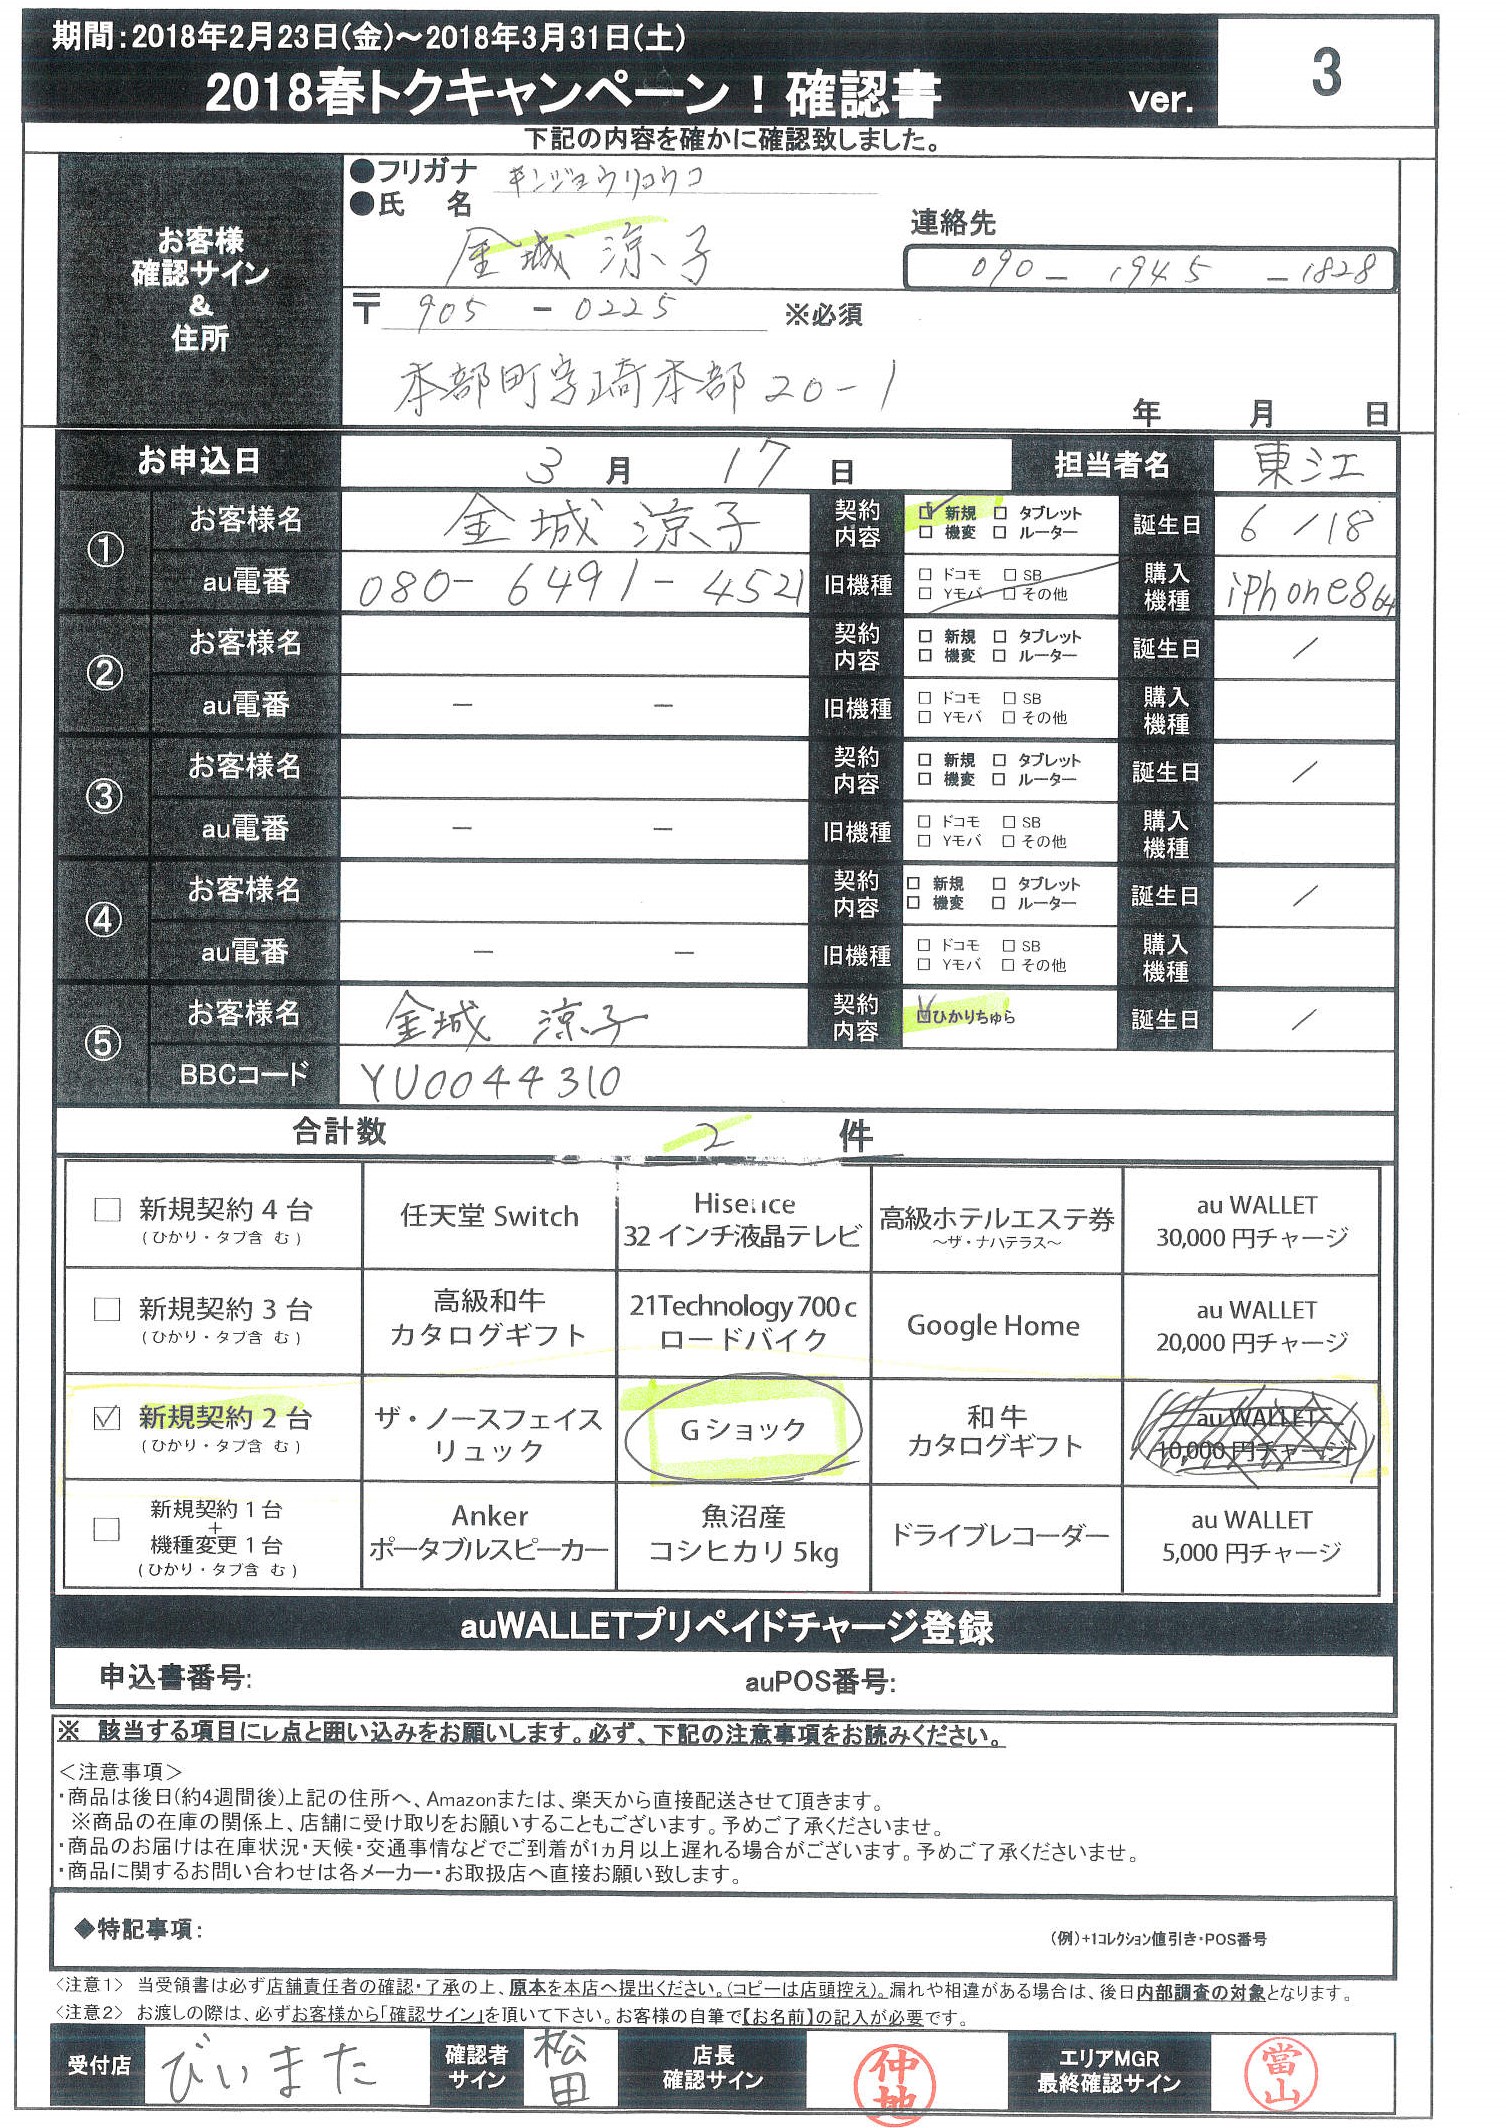 期間:2018年2月23日(金)～2018年3月31日(土)
2018春トクキャンペーン！確認書 ver. 3
下記の内容を確かに確認致しました。
お客様
確認サイン
&
住所
●フリガナ キンジョウリョウコ
●氏 名 金城 涼子
連絡先
090 - 1945 - 1828
〒 905 - 0225 ※必須
本部町字崎本部20-1
年 月 日
お申込日 3 月 17 日 担当者名 東江
① お客様名 金城 涼子 契約内容 ☑ 新規 □ タブレット □ 機変 □ ルーター 誕生日 6 / 18
au電番 080- 6491- 4521 旧機種 □ ドコモ □ SB □ Yモバ □ その他 購入機種 iPhone8 64
② お客様名 契約内容 □ 新規 □ タブレット □ 機変 □ ルーター 誕生日 /
au電番 - - 旧機種 □ ドコモ □ SB □ Yモバ □ その他 購入機種
③ お客様名 契約内容 □ 新規 □ タブレット □ 機変 □ ルーター 誕生日 /
au電番 - - 旧機種 □ ドコモ □ SB □ Yモバ □ その他 購入機種
④ お客様名 契約内容 □ 新規 □ タブレット □ 機変 □ ルーター 誕生日 /
au電番 - - 旧機種 □ ドコモ □ SB □ Yモバ □ その他 購入機種
⑤ お客様名 金城 涼子 契約内容 ☑ひかりちゅら 誕生日 /
BBCコード YU0044310
合計数 2 件
□ 新規契約 4 台
(ひかり・タブ含 む)
任天堂 Switch
Hisence
32 インチ液晶テレビ
高級ホテルエステ券
～ザ・ナハテラス～
au WALLET
30,000 円チャージ
□ 新規契約 3 台
(ひかり・タブ含 む)
高級和牛
カタログギフト
21Technology 700 c
ロードバイク
Google Home
au WALLET
20,000 円チャージ
☑ 新規契約 2 台
(ひかり・タブ含 む)
ザ・ノースフェイス
リュック
G ショック
和 牛
カタログギフト
au WALLET
10,000 円チャージ
□ 新規契約 1 台
+
機種変更 1 台
(ひかり・タブ含 む)
Anker
ポータブルスピーカー
魚沼産
コシヒカリ 5kg
ドライブレコーダー
au WALLET
5,000 円チャージ
auWALLETプリペイドチャージ登録
申込書番号: auPOS番号:
※ 該当する項目にレ点と囲い込みをお願いします。必ず、下記の注意事項をお読みください。
＜注意事項＞
・商品は後日(約4週間後)上記の住所へ、Amazonまたは、楽天から直接配送させて頂きます。
※商品の在庫の関係上、店舗に受け取りをお願いすることもございます。予めご了承くださいませ。
・商品のお届けは在庫状況・天候・交通事情などでご到着が1ヵ月以上遅れる場合がございます。予めご了承くださいませ。
・商品に関するお問い合わせは各メーカー・お取扱店へ直接お願い致します。
◆特記事項: (例)+1コレクション値引き・POS番号
<注意1> 当受領書は必ず店舗責任者の確認・了承の上、原本を本店へ提出ください。(コピーは店頭控え)。漏れや相違がある場合は、後日内部調査の対象となります。
<注意2> お渡しの際は、必ずお客様から「確認サイン」を頂いて下さい。お客様の自筆で【お名前】の記入が必要です。
受付店 びぃまた 確認者サイン 松田 店長確認サイン 仲地 エリアMGR最終確認サイン 當山